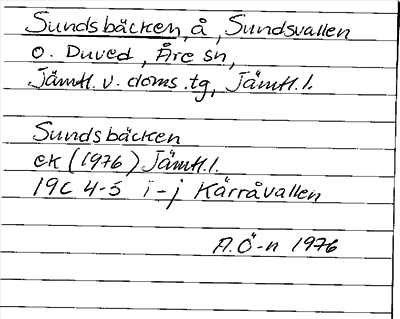 Sundsbäcken, å, Sundsvallen
o. Duved, Åre sn,
Jämtl. v. doms.tg, Jämtl. l.
Sundsbäcken
ek (1976) Jämtl. l.
19C 4-5 i-j Kärråvallen
A. Ö-n 1976